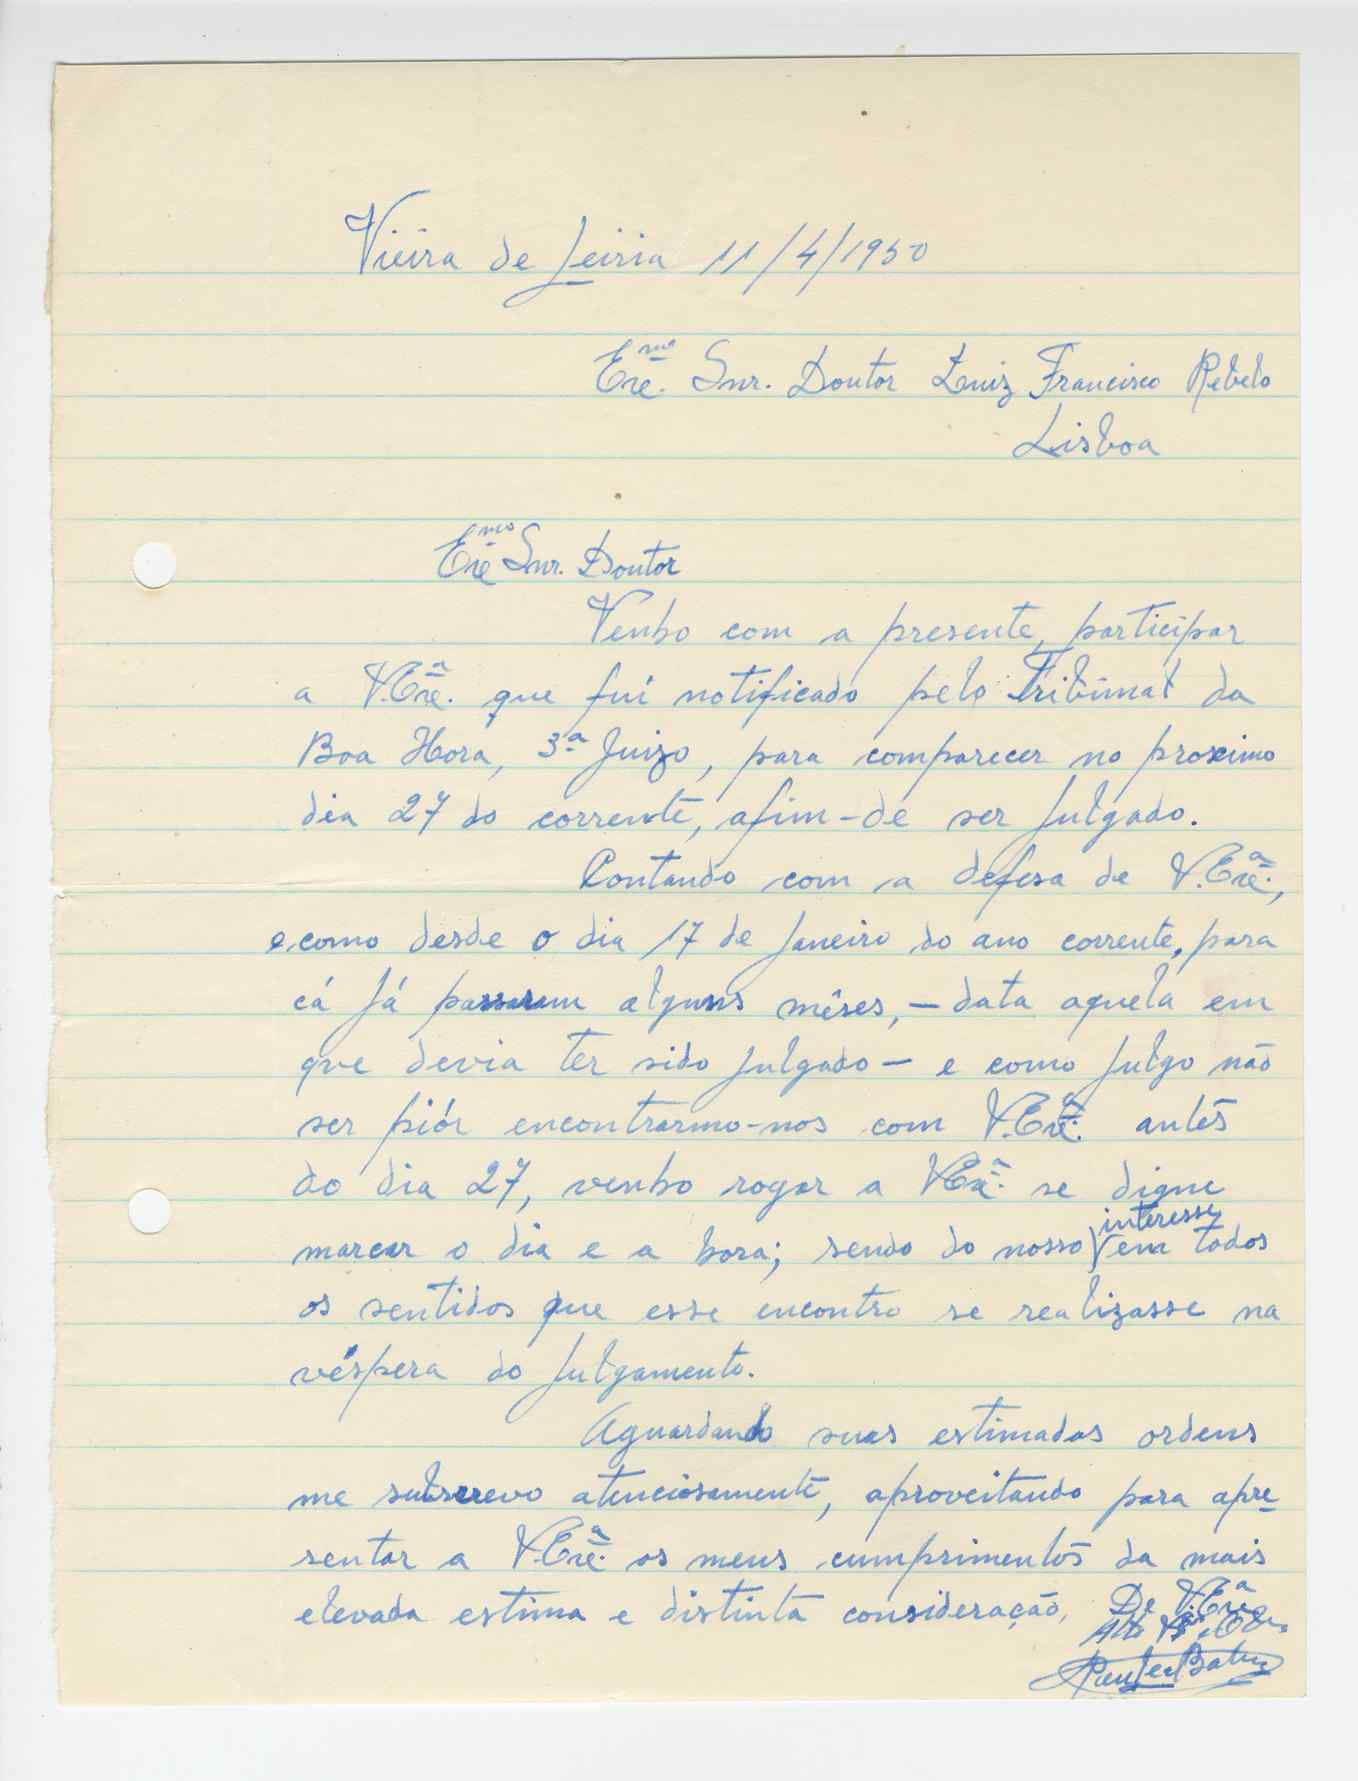 Vieira de Leiria 11/4/1950
Exmo. Snr. Doutor Luiz Francisco Rebelo
Lisboa
Exmo Snr. Doutor
Venho com a presente, participar
a V. Exª. que fui notificado pelo Tribunal da
Boa Hora, 3ª Juizo, para comparecer no proximo
dia 27 do corrente, afim-de ser julgado.
Contando com a defesa de V. Exª.,
e, como desde o dia 17 de Janeiro do ano corrente, para
cá já passaram alguns mêses, — data aquela em
que devia ter sido julgado — e como julgo não
ser piór encontrarmo-nos com V. Exª. antes
do dia 27, venho rogar a V. Exª. se digne
marcar o dia e a hora; sendo do nosso interesse em todos
os sentidos que esse encontro se realizasse na
véspera do julgamento.
Aguardando suas estimadas ordens
me subscrevo atenciosamente, aproveitando para apre-
sentar a V. Exª. os meus cumprimentos da mais
elevada estima e distinta consideração, De V. Exª